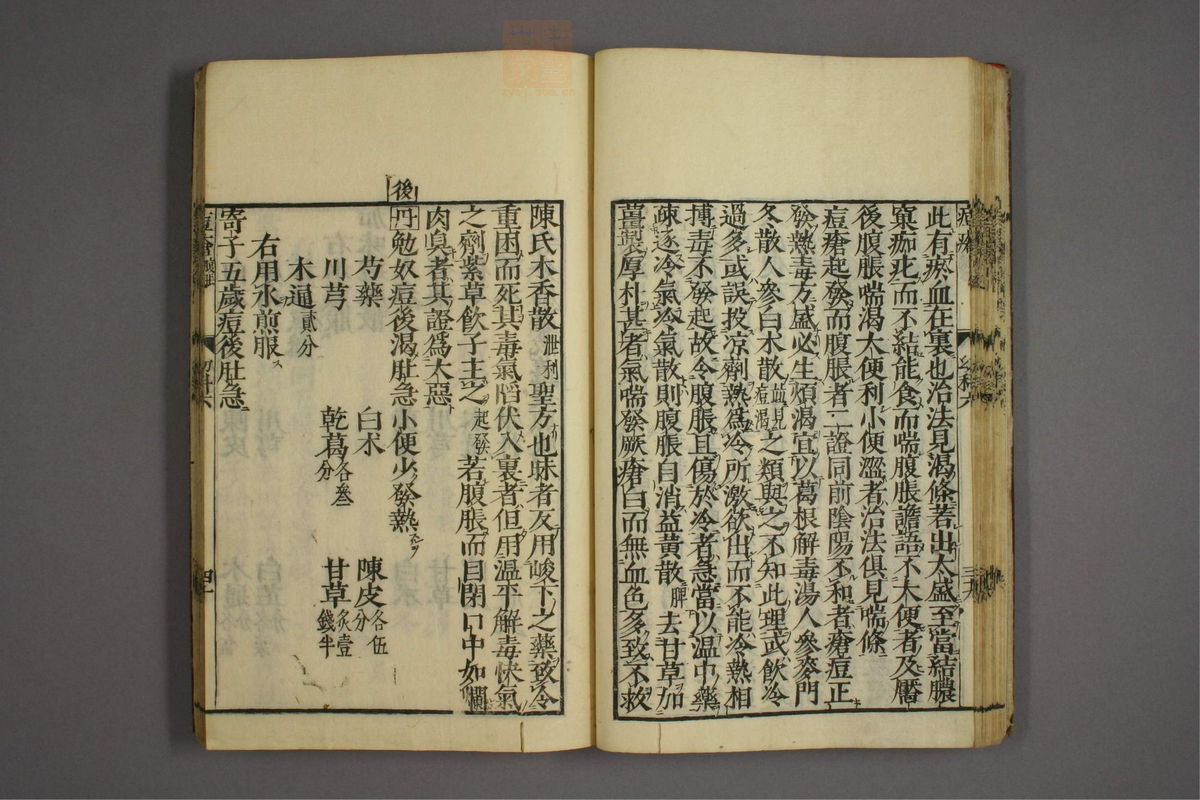 此有瘀血在裏也治法見渴條若出太盛至當結膿
窠痂疕而不結能食而喘腹脹譫語不大便者及靨
後腹脹喘渴大便利小便澀者治法俱見喘條
痘瘡起發而腹脹者二證同前陰陽不和者瘡痘正
發熱毒方盛必生煩渴宜以葛根解毒湯人參麥門
冬散人參白朮散並見痘渴之類與之不知此理或飲冷
過多或誤投凉劑熱爲冷所激欲出而不能冷熱相
搏毒不發起故令腹脹且傷於冷者急當以温中藥
疎逐冷氣冷氣散則腹脹自消益黃散脾去甘草加
薑製厚朴甚者氣喘發厥瘡白而無血色多致不救
陳氏木香散泄利聖方也昧者反用峻下之藥致冷
重困而死其毒氣䧟伏入裏者但用温平解毒快氣
之劑紫草飲子主之起發若腹脹而目閉口中如爛
肉臭者其證爲大惡
後
丹勉奴痘後渴肚急小便少發熱
芍藥 白朮 陳皮各伍分
川芎 乾葛各叁分 甘草炙壹錢半
木通貳分
右用水煎服
寄子五歲痘後肚急